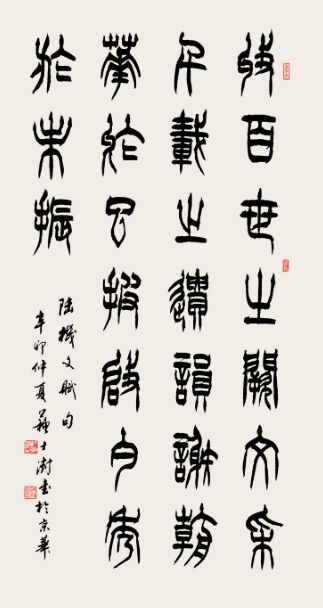 收百世之闕文采
千載之遺韻謝朝
華於已披啟夕秀
於未振
陸機文賦句
辛卯仲夏蘇士澍書於京華